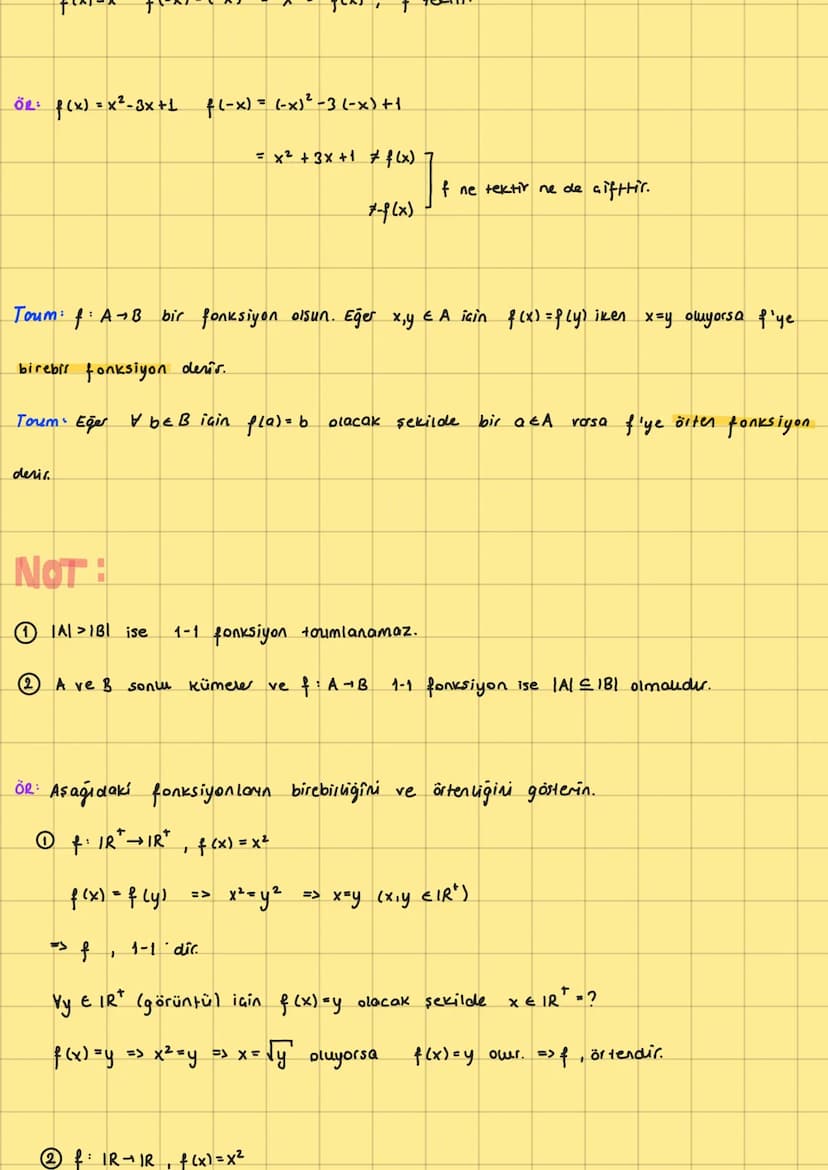 ÖR: f(x) = x²-3x+1 f(-x) = (-x)² -3 (-x) +1
= x² + 3x +1 ≠ f(x)
f ne tektir ne de çifttir.
≠-f(x)
Tanım: f : A→B bir fonksiyon olsun. Eğer x,y ∈ A için f(x) = f(y) iken x=y oluyorsa f'ye
birebir fonksiyon denir.
Tanım: Eğer ∀ b∈B için f(a) = b olacak şekilde bir a∈A varsa f'ye örten fonksiyon
denir.
NOT:
① |A| > |B| ise 1-1 fonksiyon tanımlanamaz.
② A ve B sonlu kümeler ve f : A→B 1-1 fonksiyon ise |A| ⊆ |B| olmalıdır.
ÖR: Aşağıdaki fonksiyonların birebirliğini ve örtenliğini gösterin.
① f: IR⁺→IR⁺, f(x) = x²
f(x) = f(y) => x² = y² => x=y (x,y ∈ IR⁺)
=> f , 1-1 'dir.
∀y ∈ IR⁺ (görüntü) için f(x) = y olacak şekilde x ∈ IR⁺ = ?
f(x) = y => x² = y => x = √y oluyorsa f(x) = y olur. => f , örtendir.
② f: IR→IR , f(x) = x²